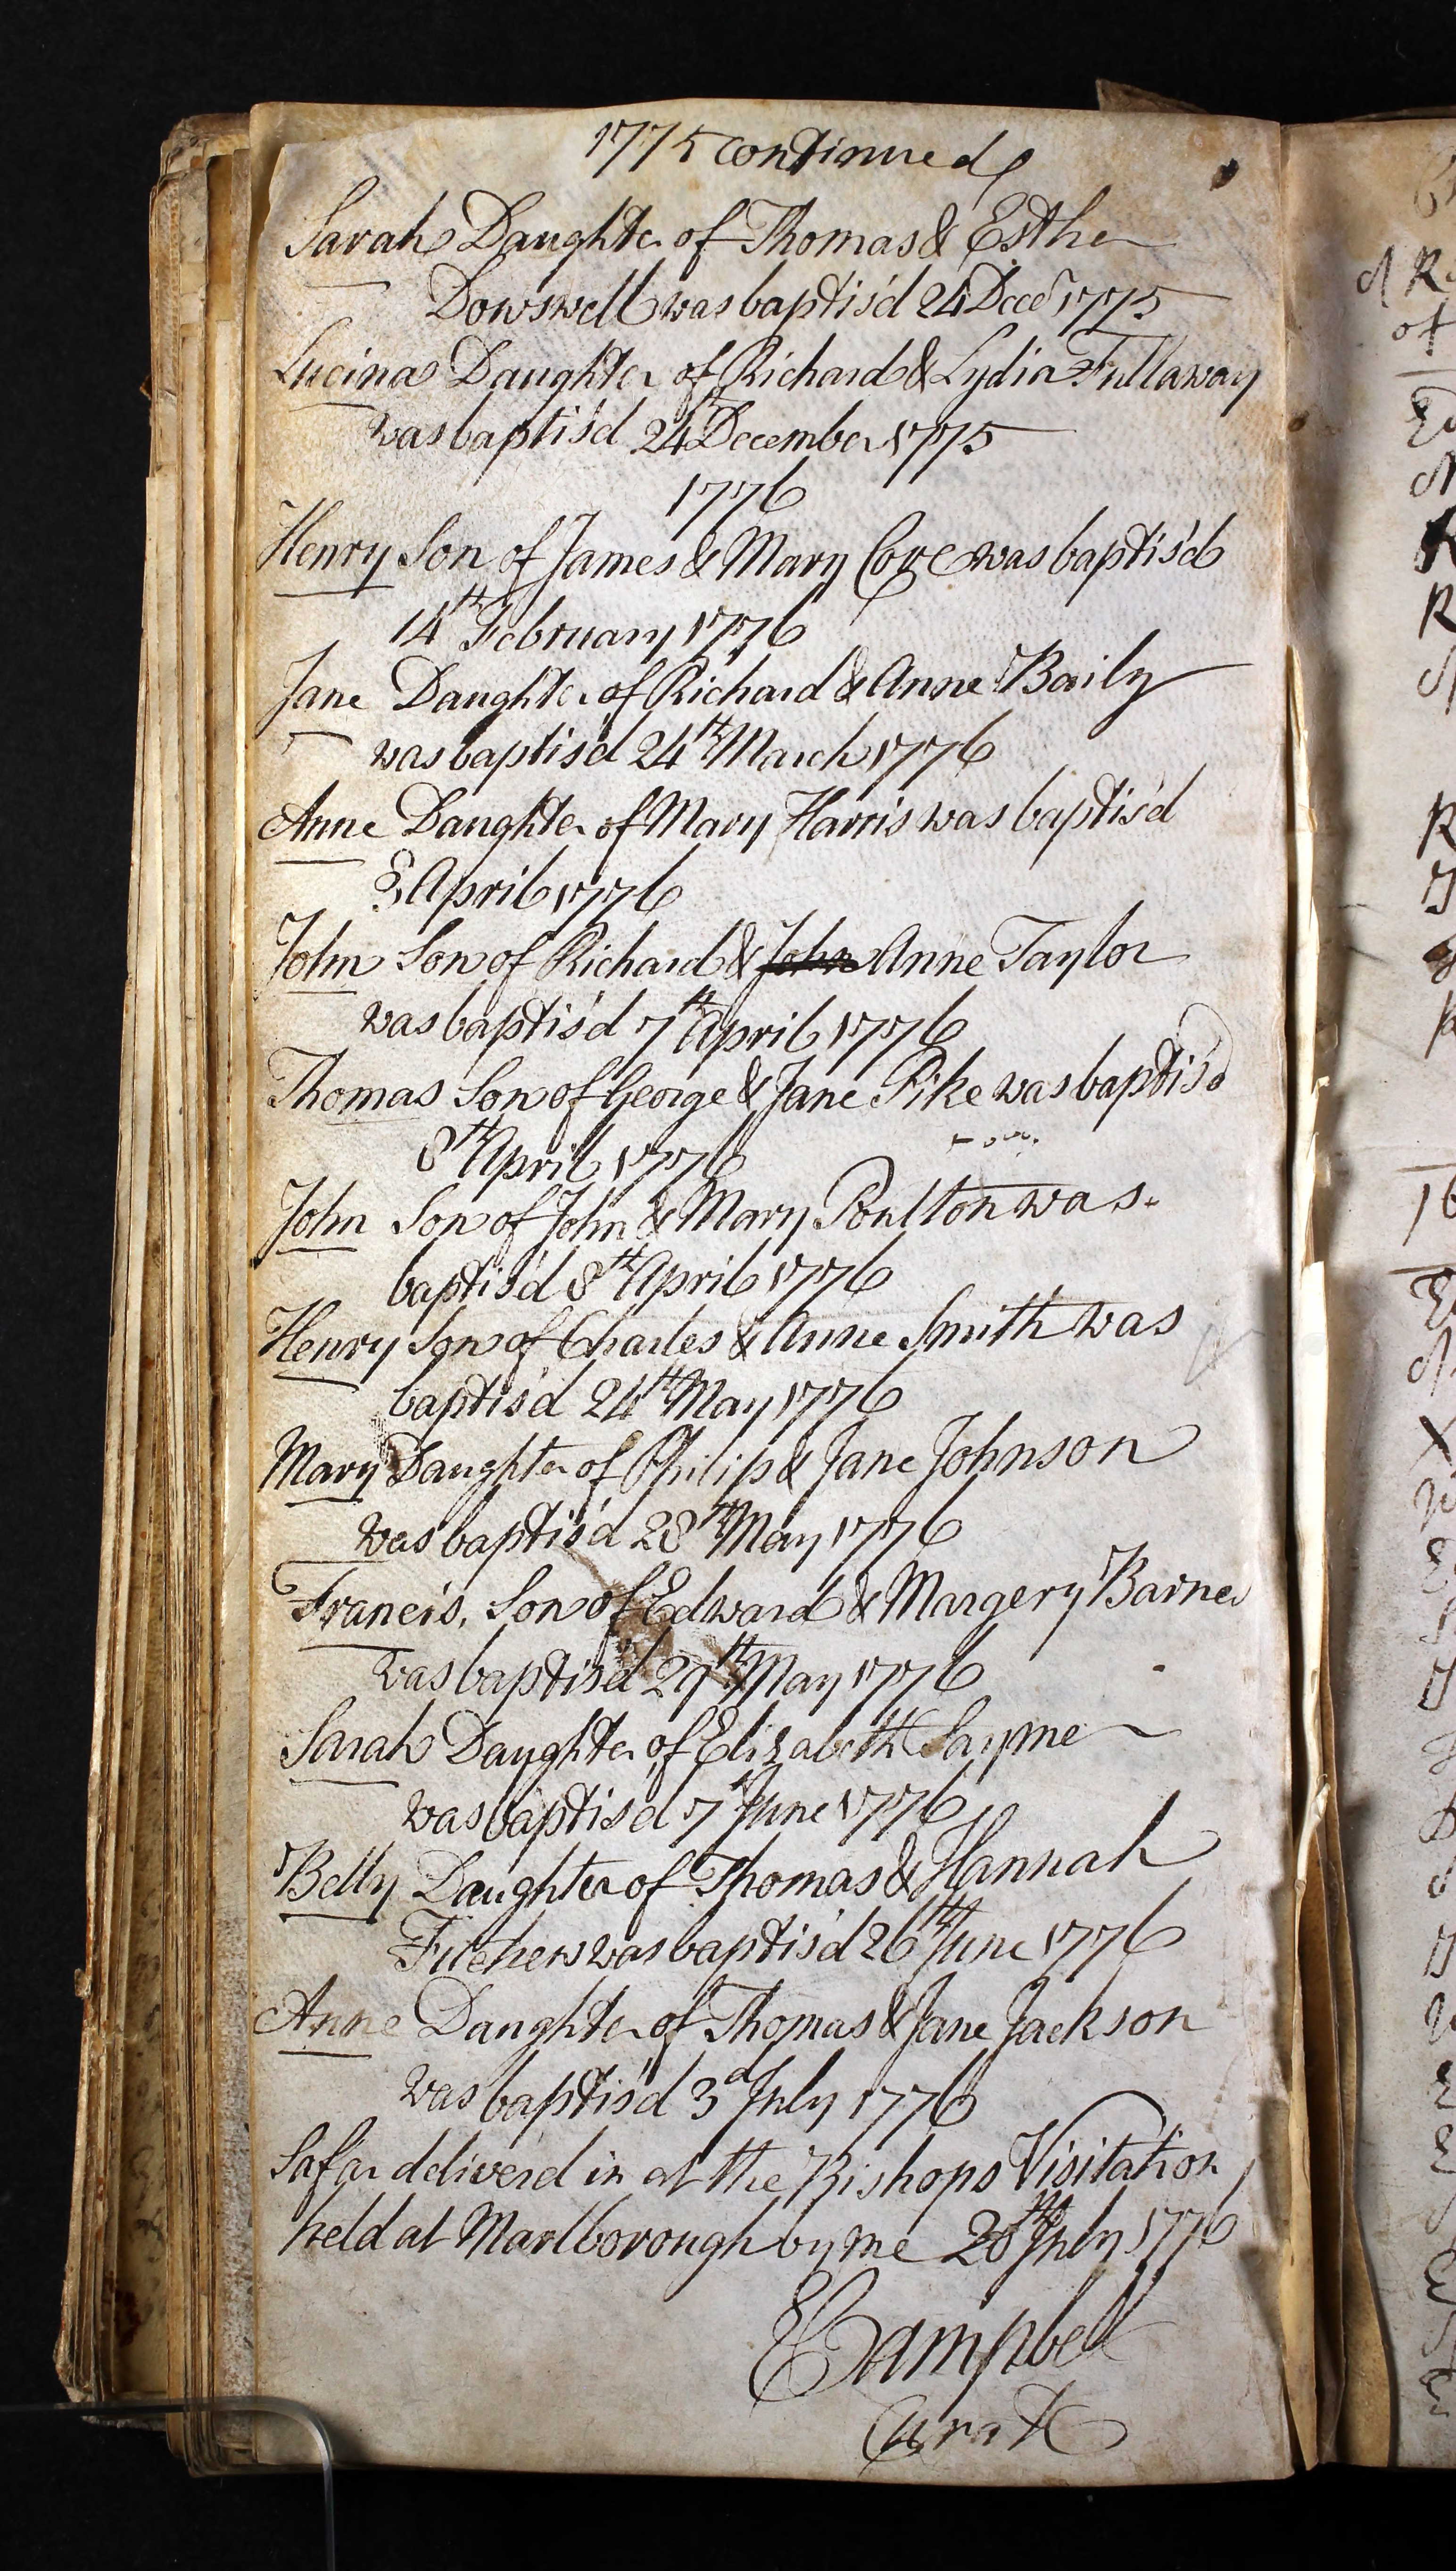 1775 continued
Sarah Daughter of Thomas & Esther
Dowswell was baptis'd 24 Decer 1775
Lucina Daughter of Richard & Lydia Fullaway
was baptis'd 24th December 1775
1776
Henry Son of James & Mary Cove was baptis'd
14th February 1776
Jane Daughter of Richard & Anne Baily
was baptis'd 24th March 1776
Anne Daughter of Mary Harris was baptis'd
April 1776
John Son of Richard & John Anne Taylor
was baptis'd 7th April 1776
Thomas Son of George & Jane Pike was baptis'd
8th April 1776
John Son of John & Mary Poulton was
baptis'd 8th April 1776
Henry Son of Charles & Anne Smith was
baptis'd 24th May 1776
Mary Daughter of Philip & Jane Johnson
was baptis'd 28th May 1776
Francis Son of Edward & Margery Barnes
was baptis'd 29th May 1776
Sarah Daughter of Elizabeth
was baptis'd 7th June 1776
Betty Daughter of Thomas & Hannah
was baptis'd 26th June 1776
Anne Daughter of Thomas & Jane Jackson
was baptis'd 3d July 1776
So far deliver'd in at the Bishops Visitation
held at Marlborough by me July 1776
Campbell
Curate